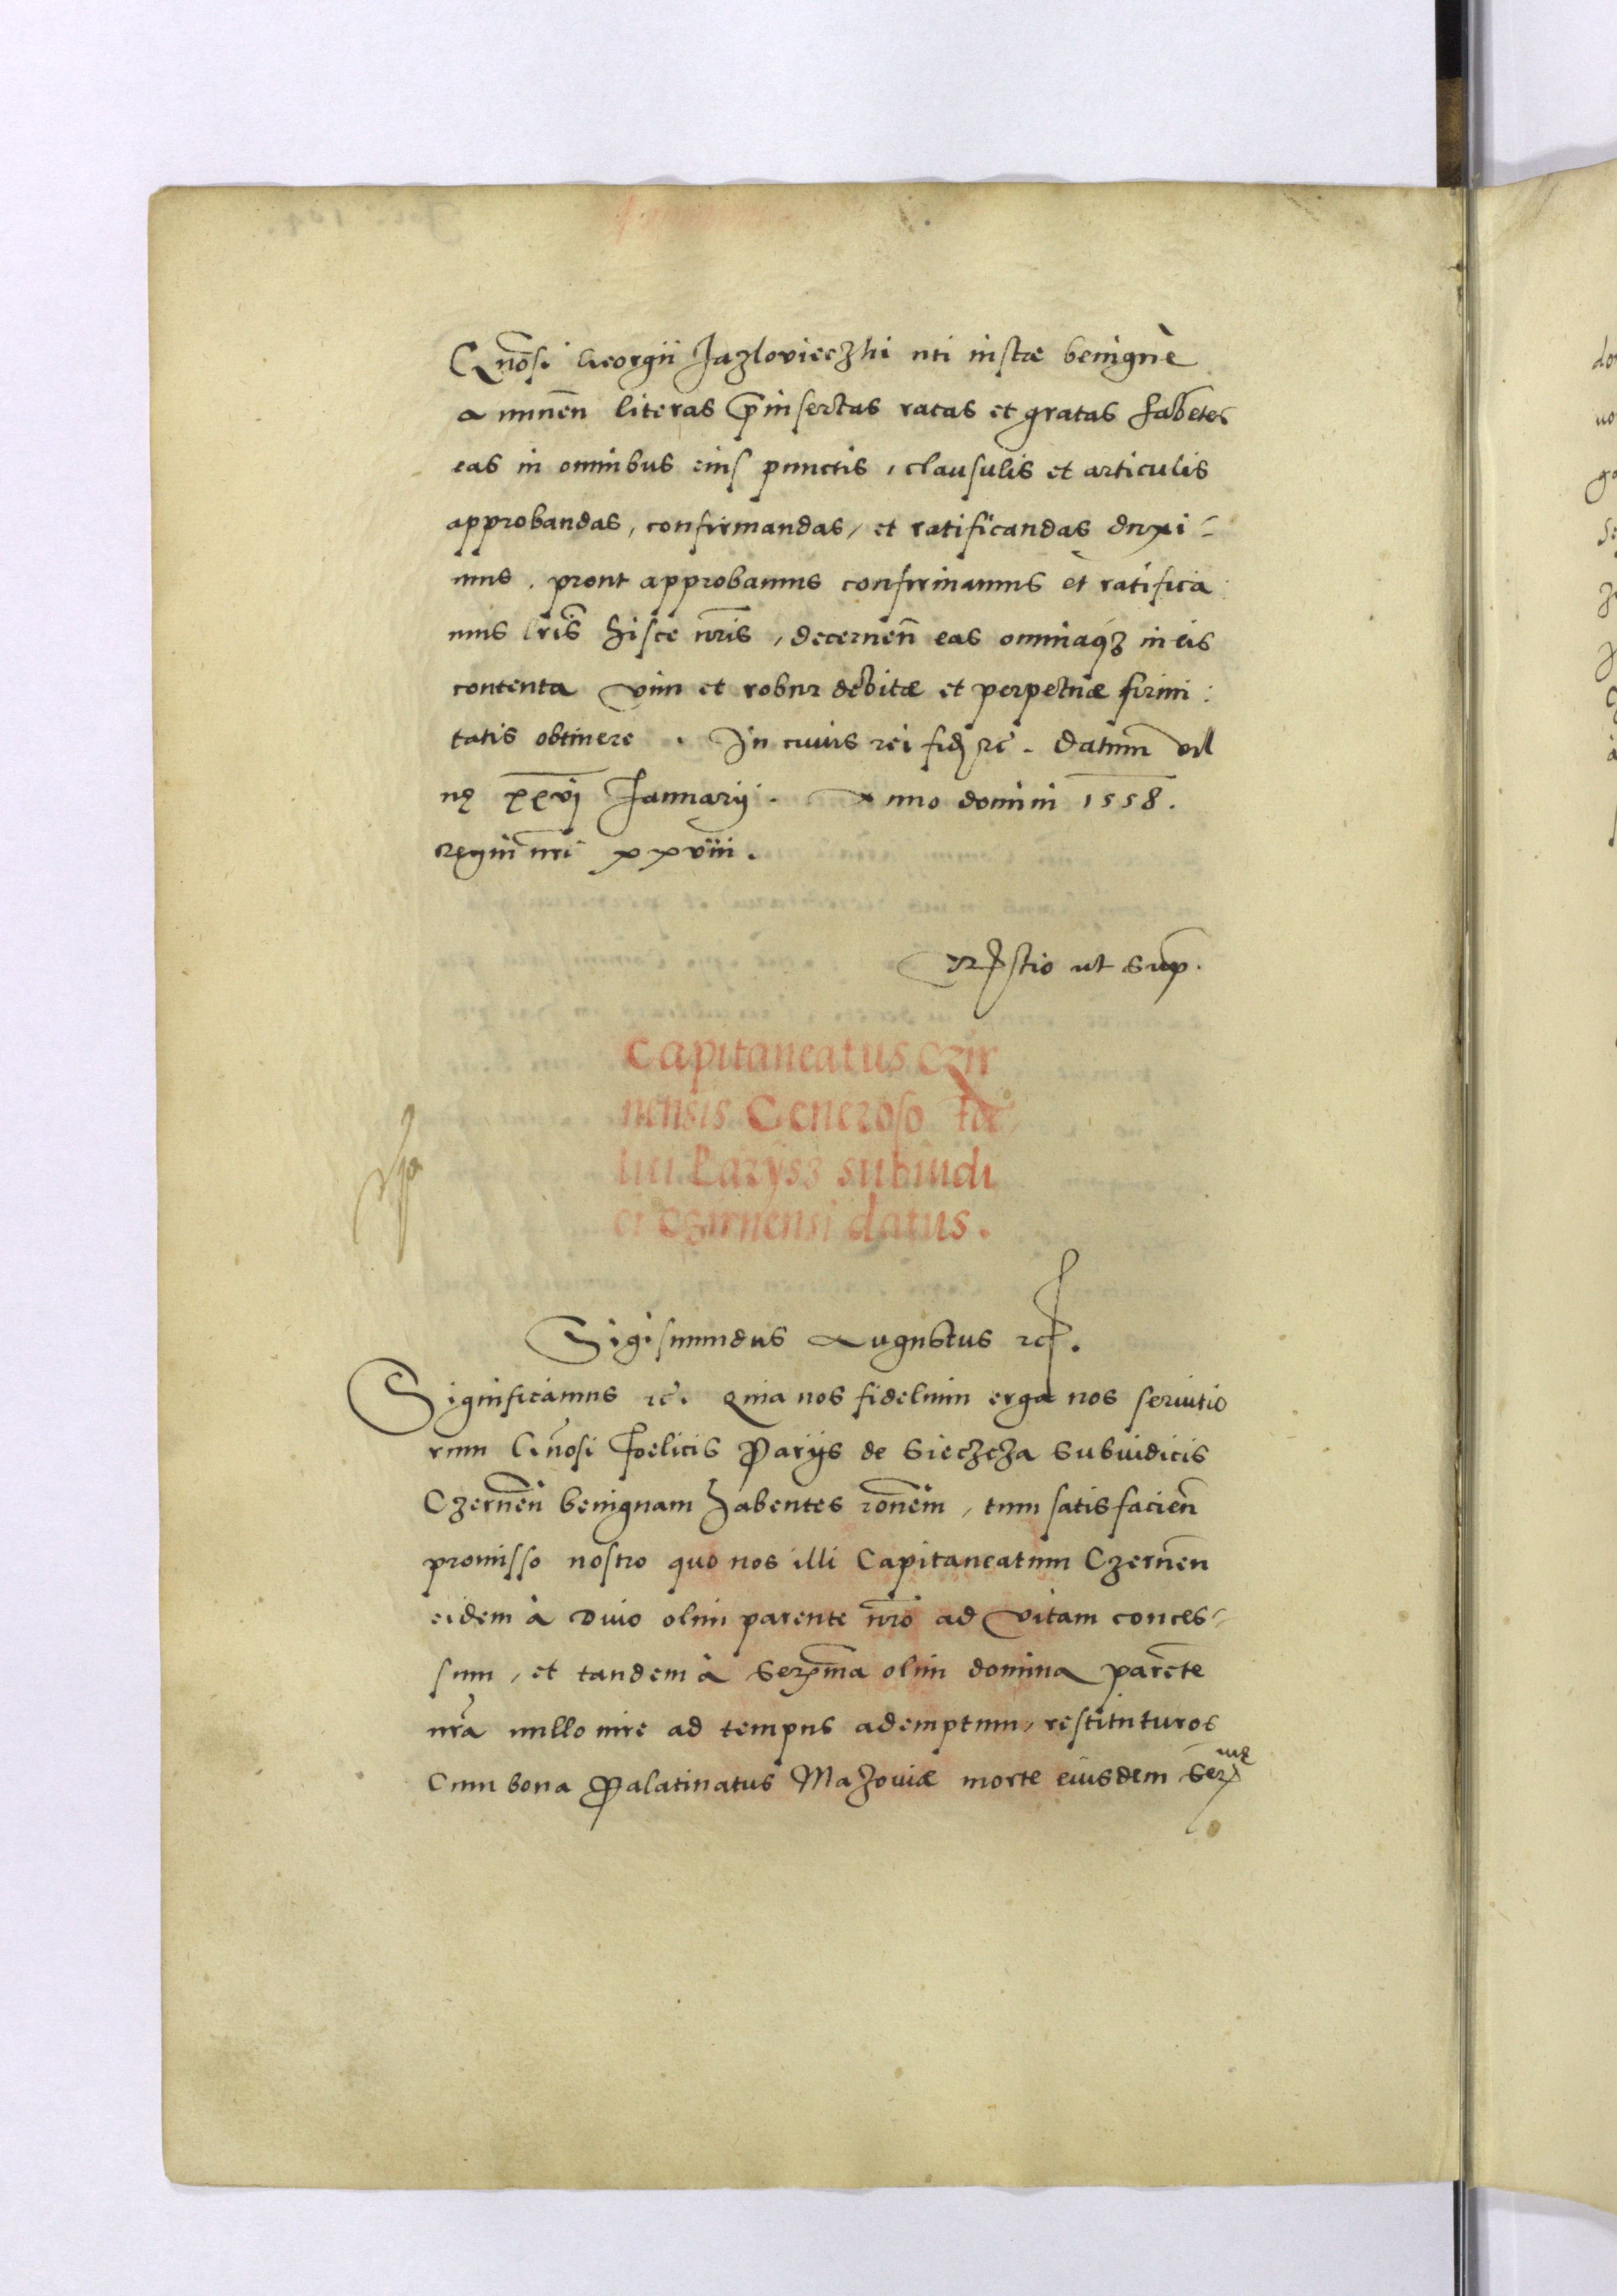 Gnosi Georgii Jazlovieczki uti iustae benignè
annuen literas prinsertas ratas et gratas habetes
eas in omnibus eius punctis, clausulis et articulis
approbandas, confirmandas, et ratificandas duxi-
mus. prout approbamus confirmamus et ratifica
mus lris hisce nris, decernen eas omniaqz in eis
contenta vim et robur debitae et perpetuae firmi:
tatis obtinere. In cuius rei fid rc. Datum vil
nę xxvj Januarij. Anno domini 1558.
regni nri xxviii.
ut sup.
Capitaneatus Czir
nensis Generoso Foe
lici Parysz subiudi
ci Czirnensi datus.
Sigismundus Augustus rc.
Significamus rc. Quia nos fidelium erga nos servitio
rum Gnosi Foelicis Parijs de Sieczcza Subiudicis
Czernen benignam habentes ronem, tum satisfacien
promisso nostro quo nos illi Capitaneatum Czernen
eidem à Divo olim parente nro ad vitam conces-
sum, et tandem à Serma olim domina parete
nra nullo iure ad tempus ademptum, restituturos
Cum bona Palatinatus Mazoviae morte eiusdem Ser mę